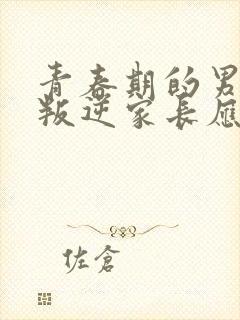 青春期的男
叛逆家长应
佐倉